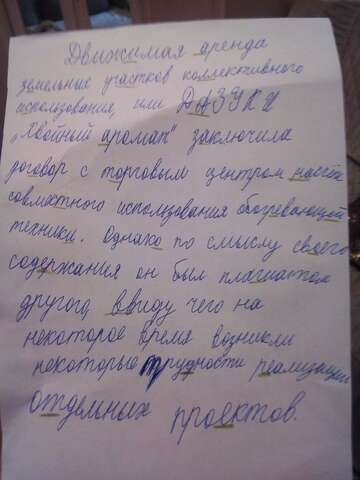 Движимая аренда
земельных участков коллективного
использования, или ДАЗУКИ
„Хвойный аромат" заключила
договор с торговым центром насчёт
совместного использования обогревающей
техники. Однако по смыслу своего
содержания он был плагиатом
другого, ввиду чего на
некоторое время возникли
некоторые трудности реализации
отдельных проектов.